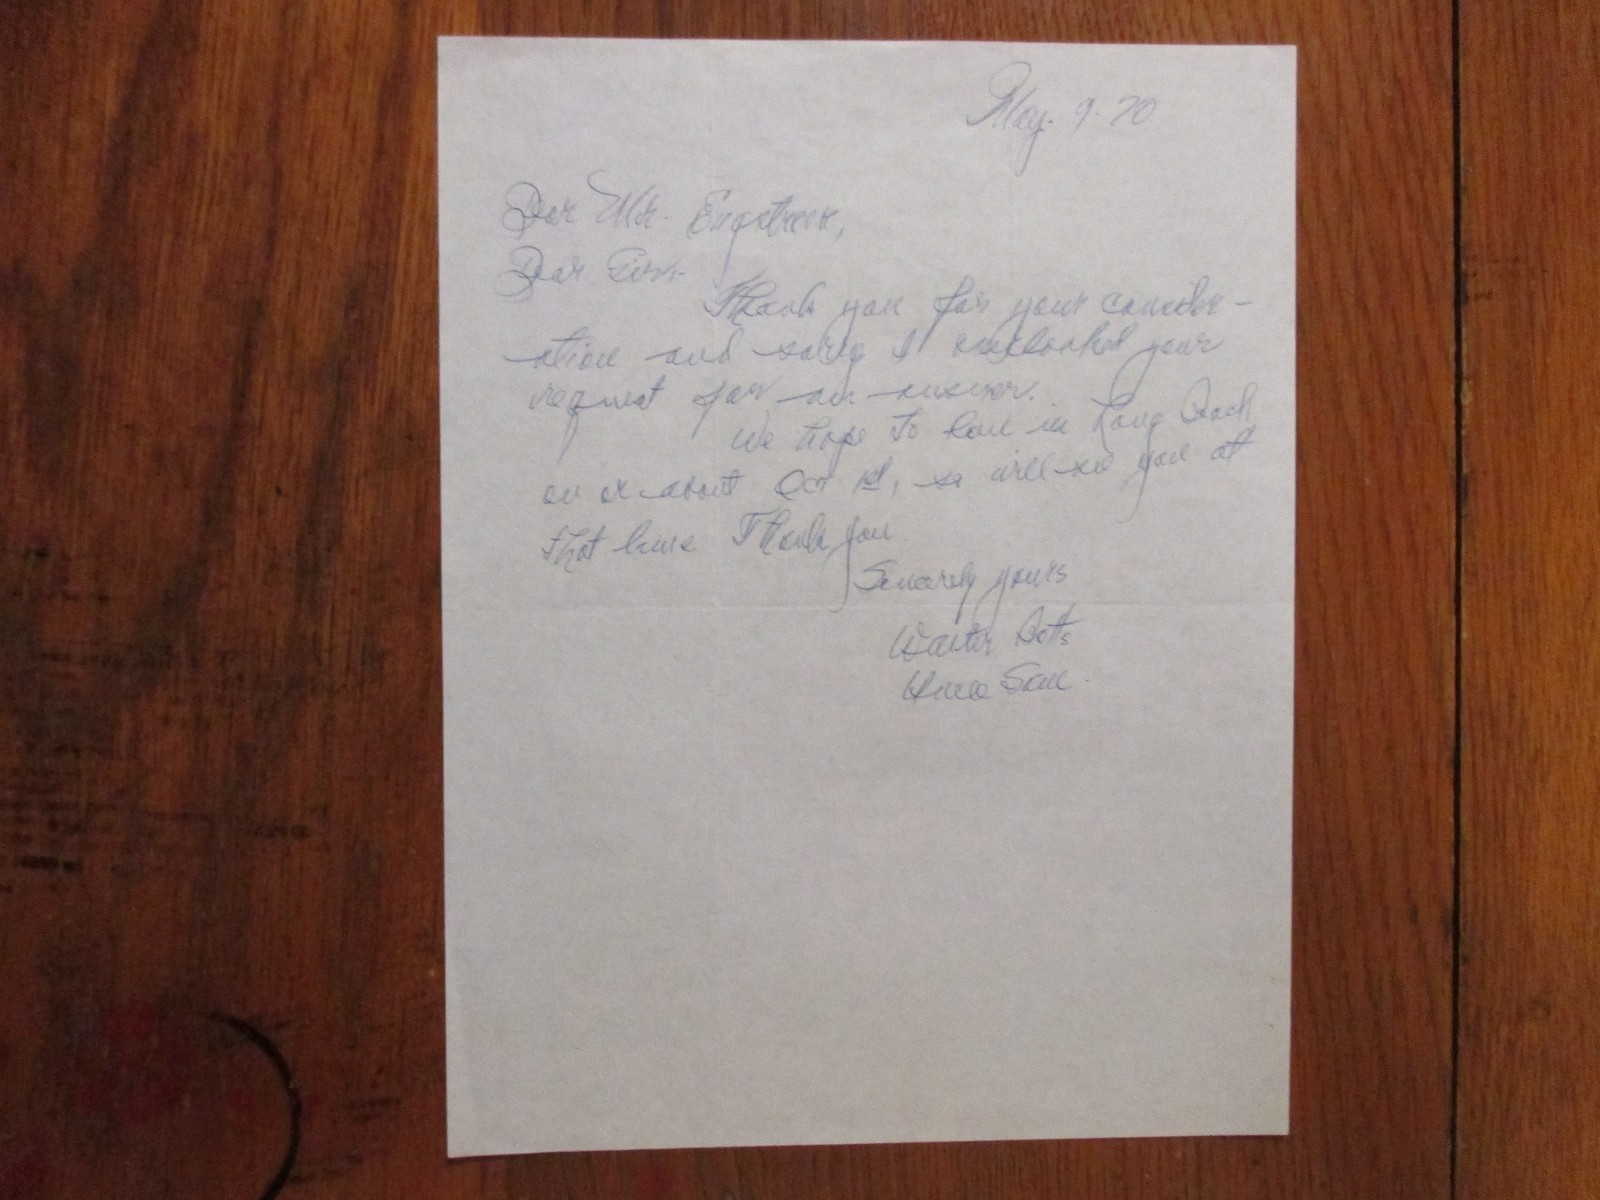 May. 9-70
Dear Mr. Engstrom,
Dear Sir:-
Thank you for your consider-
ation and sorry I overlooked your
request for an answer.
We hope to be in Long Beach
on or about Oct 1st, so will see you at
that time Thank you.
Sincerely yours
Walter Botts
Uncle Sam.